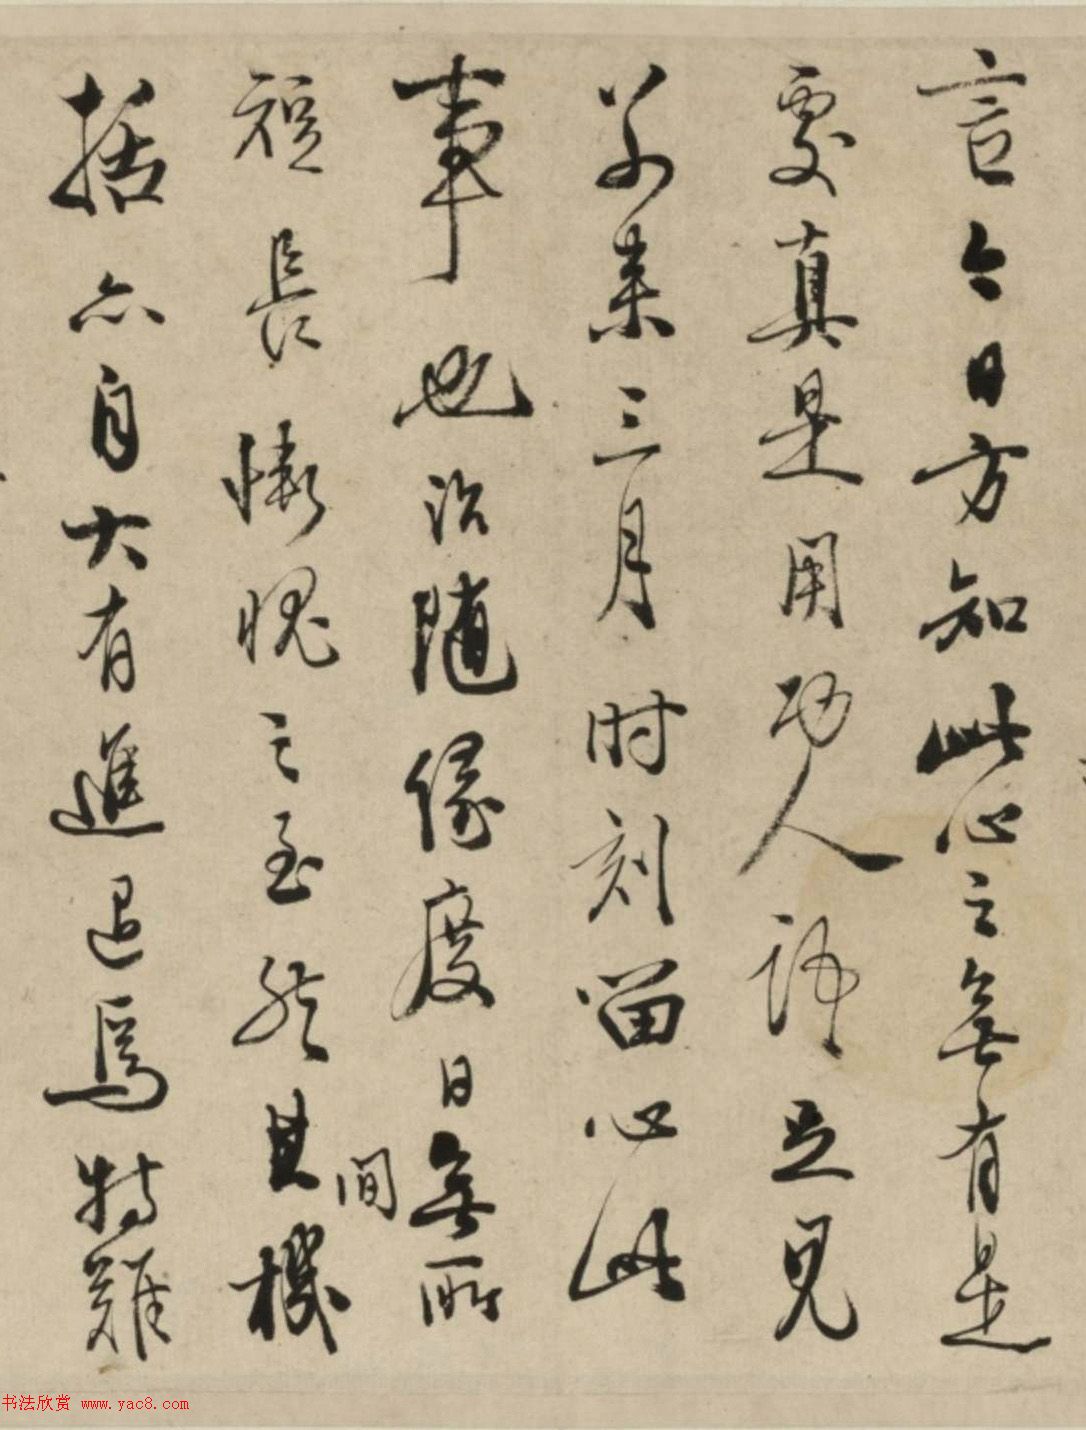 言今日方知此心之無有是
處真是用功人語足見
別來三月时刻留心此
事也治隨緣度日無所
短長慚愧之至然其間機
括亦自大有進退焉特難
书法欣赏 www.yac8.com